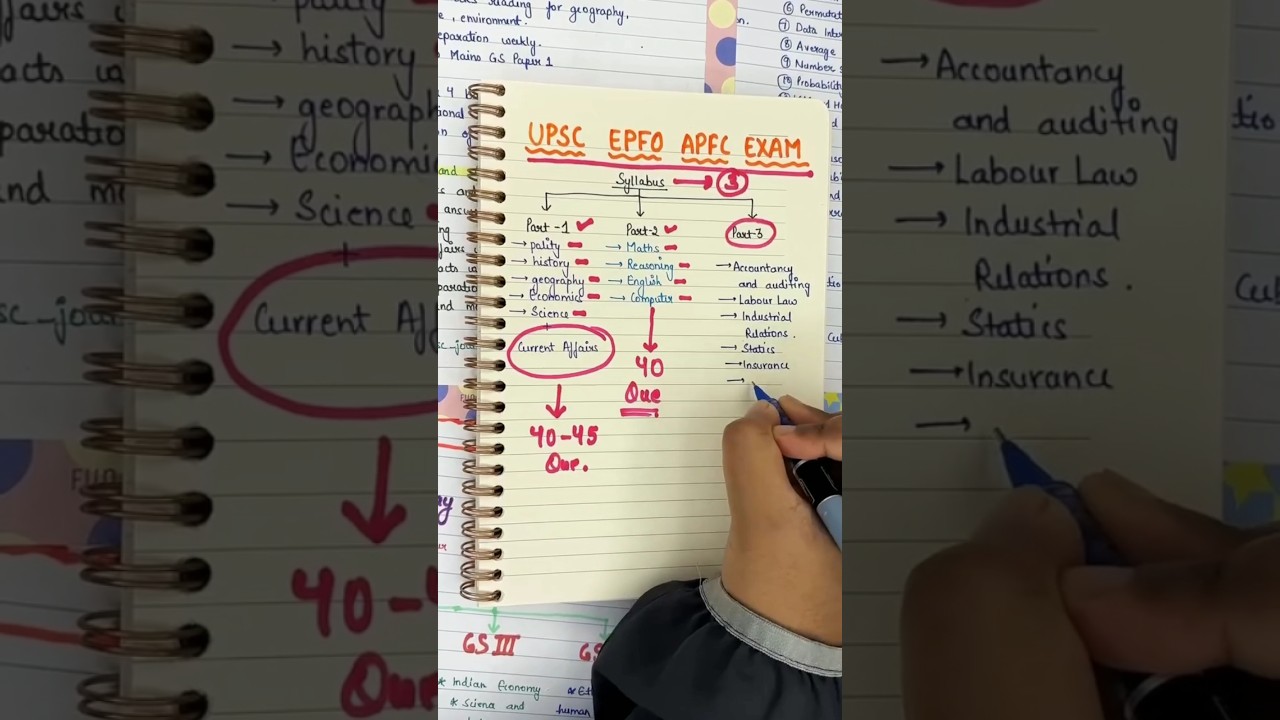 reading for geography,
, environment.
eparation weekly.
Mains GS Paper 1
⑥ Permutat
⑦ Data Inter
⑧ Average
⑨ Number
⑩ Probabilit
UPSC EPFO APFC EXAM
Syllabus → 3
Part -1 ✓
→ pality
→ history
→ geography
→ Economics
→ Science
+
Current Affairs
40-45
Que.
Part-2 ✓
→ Maths
→ Reasoning
→ English
→ Computer
40
Que
Part-3
→ Accountancy
and auditing
→ Labour Law
→ Industrial
Relations.
→ Statics
→ Insurance
→
GS III
GS
* Indian Economy
* Science and
human
pality
→ history
→ geography
→ Economics
→ Science
+
Current Aff
40-4
Que
→ Accountancy
and auditing
→ Labour Law
→ Industrial
Relations.
→ Statics
→ Insurance
→